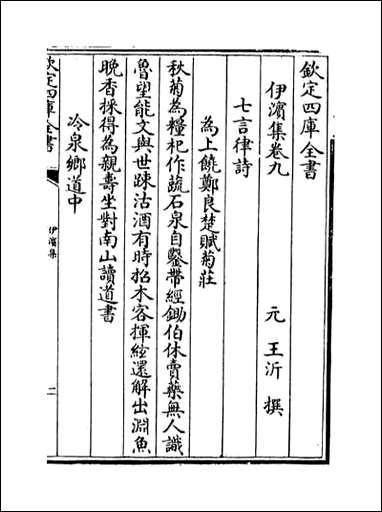 欽定四庫全書
伊濱集卷九
元 王沂 撰
七言律詩
為上饒鄭良楚賦菊莊
秋菊為糧杞作蔬石泉自鑿帶經鋤伯休賣藥無人識
魯望能文與世踈沽酒有時招木客揮絃還解出淵魚
晩香採得為親壽坐對南山讀道書
冷泉鄉道中
欽定四庫全書
伊濱集